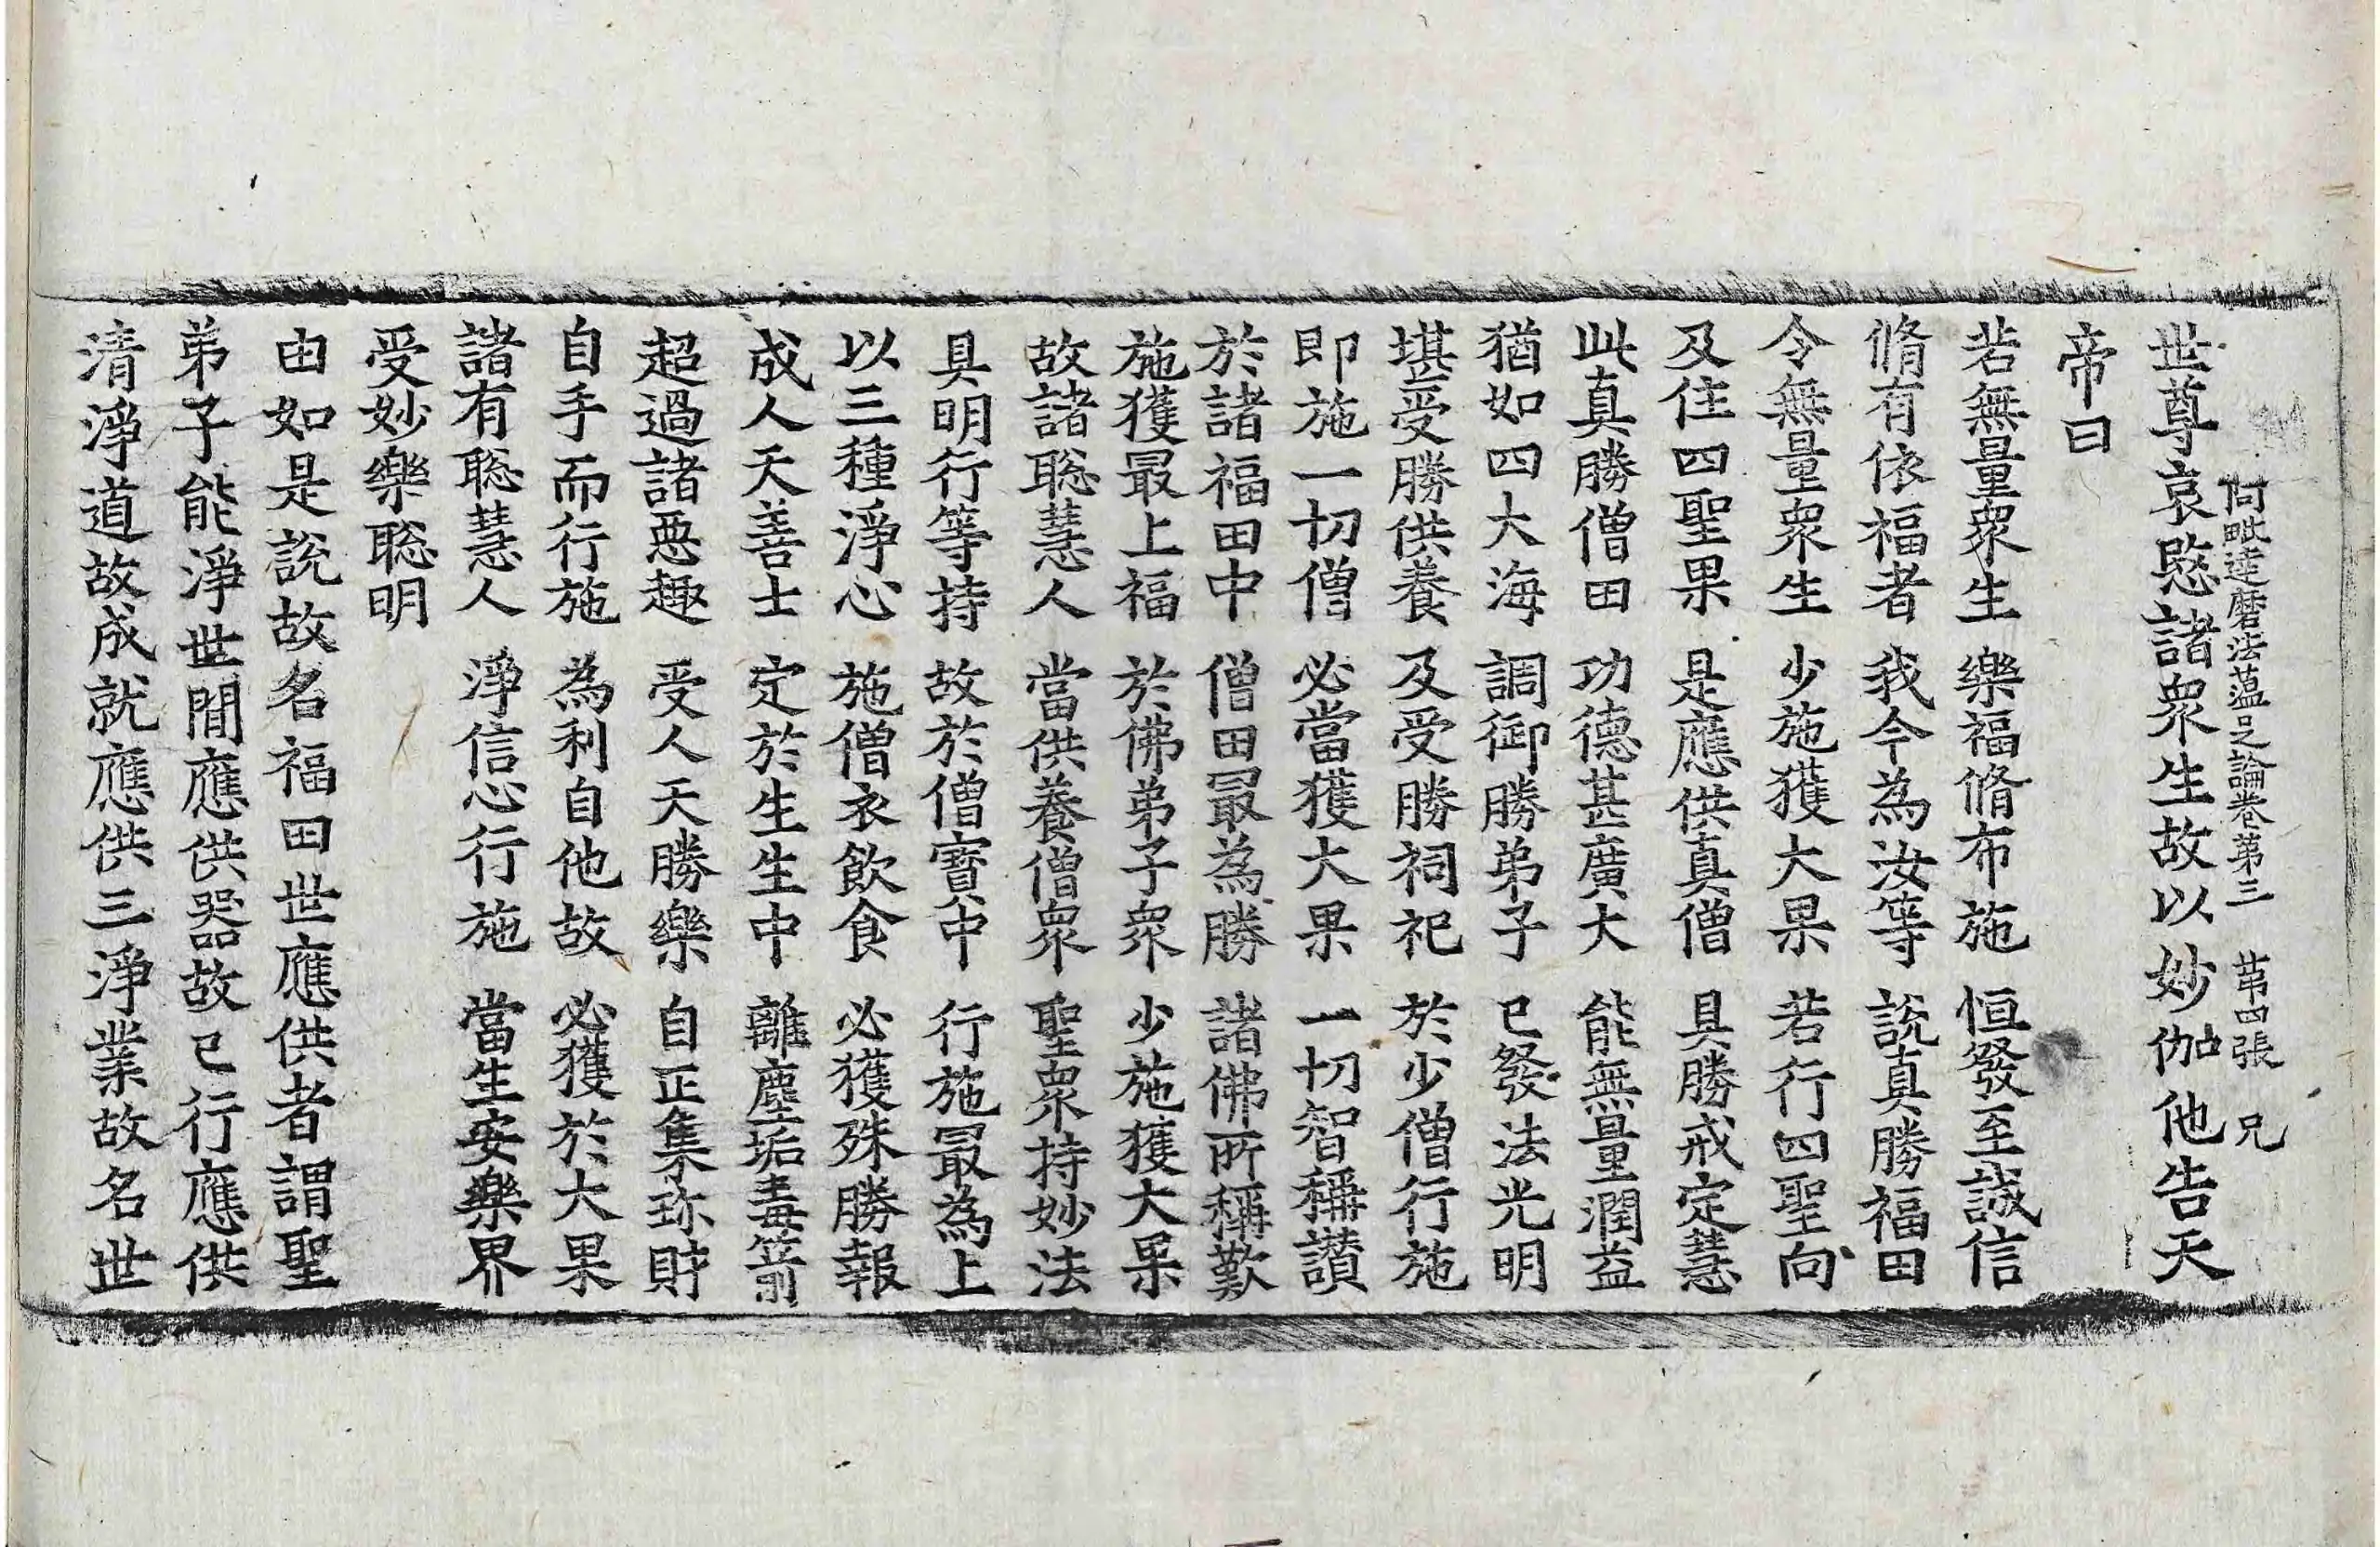 阿毗達磨法蘊足論卷第三 苐四張 兄
世尊哀愍諸衆生故以妙伽他告天
帝曰
若無量衆生 樂福脩布施 恒發至誠信
脩有依福者 我今為汝等 說真勝福田
令無量衆生 少施獲大果 若行四聖向
及住四聖果 是應供真僧 具勝戒定慧
此真勝僧田 功德甚廣大 能無量潤益
猶如四大海 調御勝弟子 已發法光明
堪受勝供養 及受勝祠祀 於少僧行施
即施一切僧 必當獲大果 一切智稱讚
於諸福田中 僧田最為勝 諸佛所稱歎
施獲最上福 於佛弟子衆 少施獲大果
故諸聡慧人 當供養僧衆 聖衆持妙法
具明行等持 故於僧寶中 行施最為上
以三種淨心 施僧衣飲食 必獲殊勝報
成人天善士 定於生生中 離塵垢毒箭
超過諸惡趣 受人天勝樂 自正集珎財
自手而行施 為利自他故 必獲於大果
諸有聡慧人 淨信心行施 當生安樂界
受妙樂聡明
由如是說故名福田世應供者謂聖
弟子能淨世間應供器故已行應供
清淨道故成就應供三淨業故名世